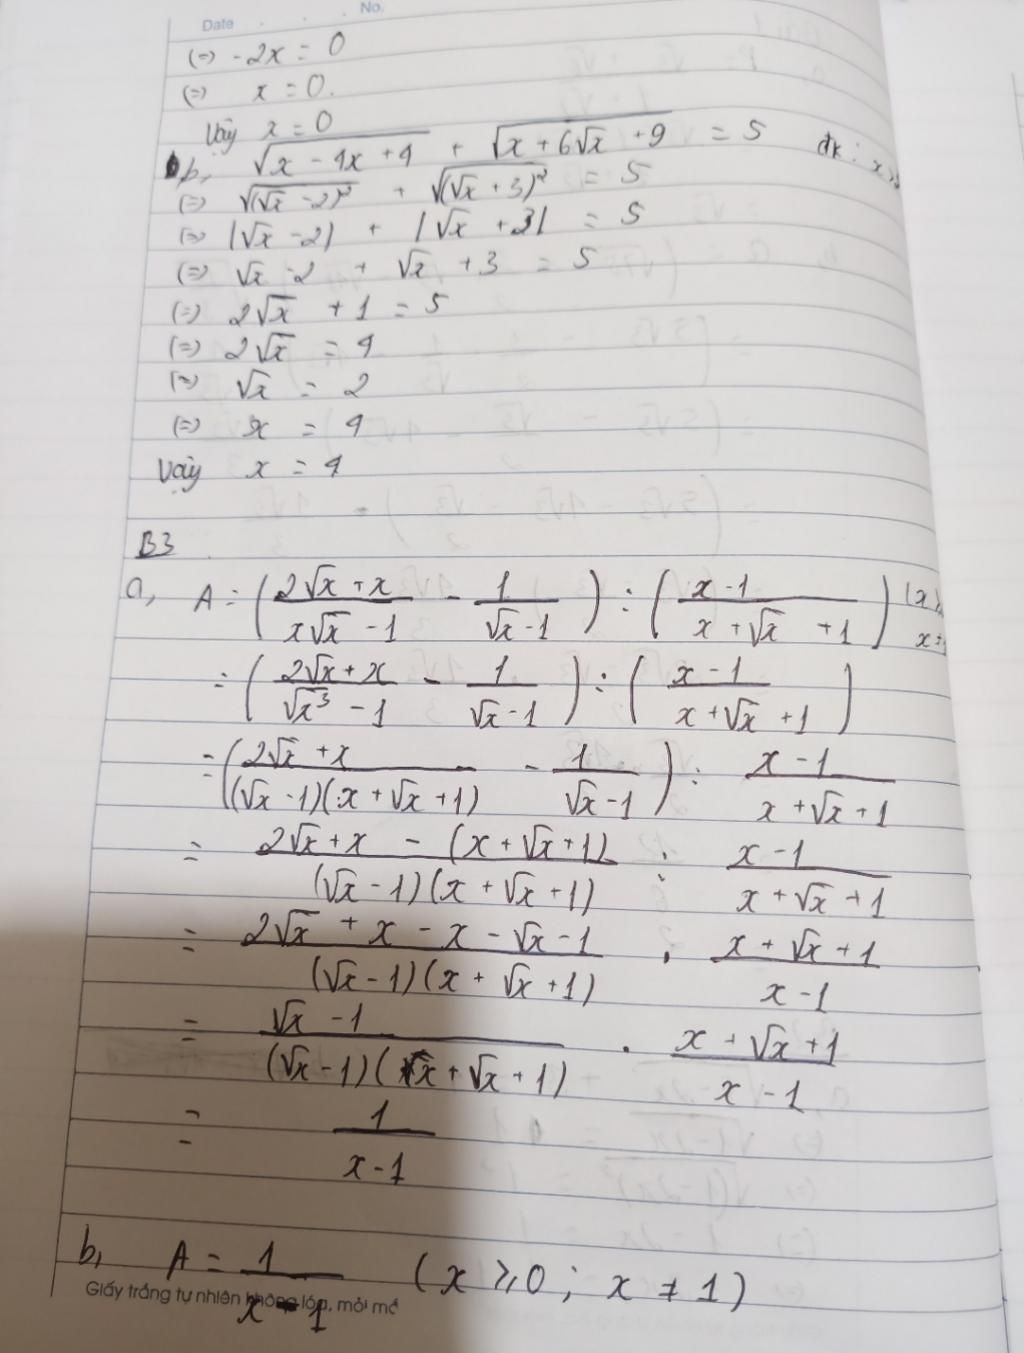 Date No.
(=) -2x = 0
(=) x = 0.
Vậy x = 0
b, √(x - 4x + 4) + √(x + 6√x + 9) = 5 đk: x ≥
(=) √((√x - 2)²) + √((√x + 3)²) = 5
(=) |√x - 2| + |√x + 3| = 5
(=) √x - 2 + √x + 3 = 5
(=) 2√x + 1 = 5
(=) 2√x = 4
(=) √x = 2
(=) x = 4
Vậy x = 4
B3
a, A = ((2√x + x)/(x√x - 1) - 1/(√x - 1)) : ((x - 1)/(x + √x + 1)) (x ≥ x ≠
= ((2√x + x)/(√x³ - 1) - 1/(√x - 1)) : ((x - 1)/(x + √x + 1))
= ((2√x + x)/((√x - 1)(x + √x + 1)) - 1/(√x - 1)) : (x - 1)/(x + √x + 1)
= (2√x + x - (x + √x + 1))/((√x - 1)(x + √x + 1)) : (x - 1)/(x + √x + 1)
= (2√x + x - x - √x - 1)/((√x - 1)(x + √x + 1)) . (x + √x + 1)/(x - 1)
= (√x - 1)/((√x - 1)(x + √x + 1)) . (x + √x + 1)/(x - 1)
= 1/(x - 1)
b, A = 1/(x - 1) (x ≥ 0; x ≠ 1)
Giấy trắng tự nhiên không lóa, mỏi mắ